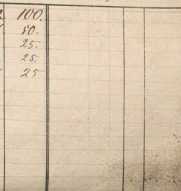 100.
50.
25.
25.
25